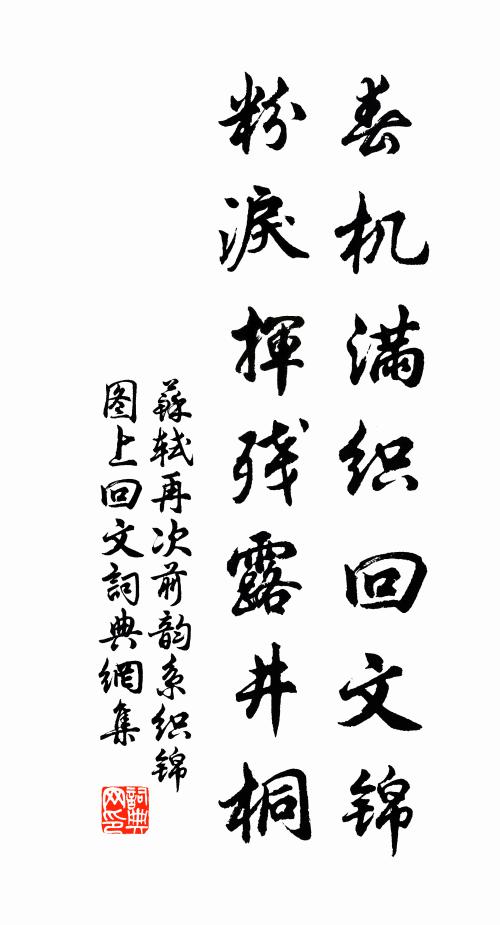 春机满织回文锦
粉淚揮残露井桐
蘇轼再次前韵系织锦
图上回文詞典網集
詞典网印